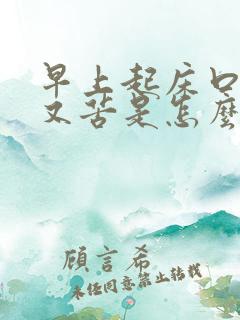 早上起床口
又苦是怎麼
顧言希
未任同意禁止转载